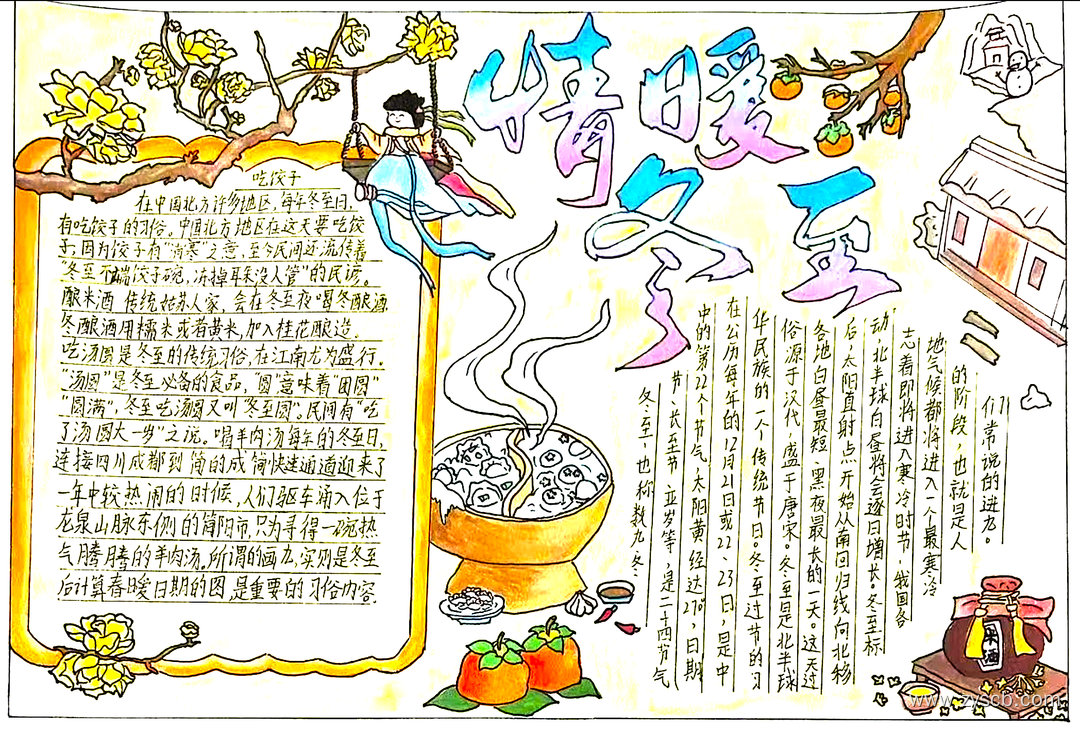 情暖
冬至
吃饺子
在中国北方许多地区,每年冬至日,
有吃饺子的习俗。中国北方地区在这天要吃饺
子,因为饺子有"消寒"之意,至今民间还流传着
"冬至不端饺子碗,冻掉耳朵没人管"的民谚。
酿米酒 传统姑苏人家,会在冬至夜喝冬酿酒
冬酿酒用糯米或者黄米,加入桂花酿造。
吃汤圆是冬至的传统习俗,在江南尤为盛行。
"汤圆"是冬至必备的食品,"圆"意味着"团圆"
"圆满",冬至吃汤圆又叫"冬至团"。民间有"吃
了汤圆大一岁"之说。喝羊肉汤每年的冬至日,
连接四川成都到简的成简快速通道迎来了
一年中较热闹的时候,人们驱车涌入位于
龙泉山脉东侧的简阳市,只为寻得一碗热
气腾腾的羊肉汤。所谓的画九,实则是冬至
后计算春暖日期的图,是重要的习俗内容。
冬至,也称数九冬
节、长至节、亚岁等,是二十四节气
中的第22个节气,太阳黄经达270°,日期
在公历每年的12月21日或22、23日,是中
华民族的一个传统节日。冬至过节的习
俗源于汉代,盛于唐宋。冬至是北半球
各地白昼最短、黑夜最长的一天。这天过
后,太阳直射点开始从南回归线向北移
动,北半球白昼将会逐日增长。冬至标
志着即将进入寒冷时节,我国各
地气候都将进入一个最寒冷
的阶段,也就是人
们常说的进九。
米酒
www.zyscb.com